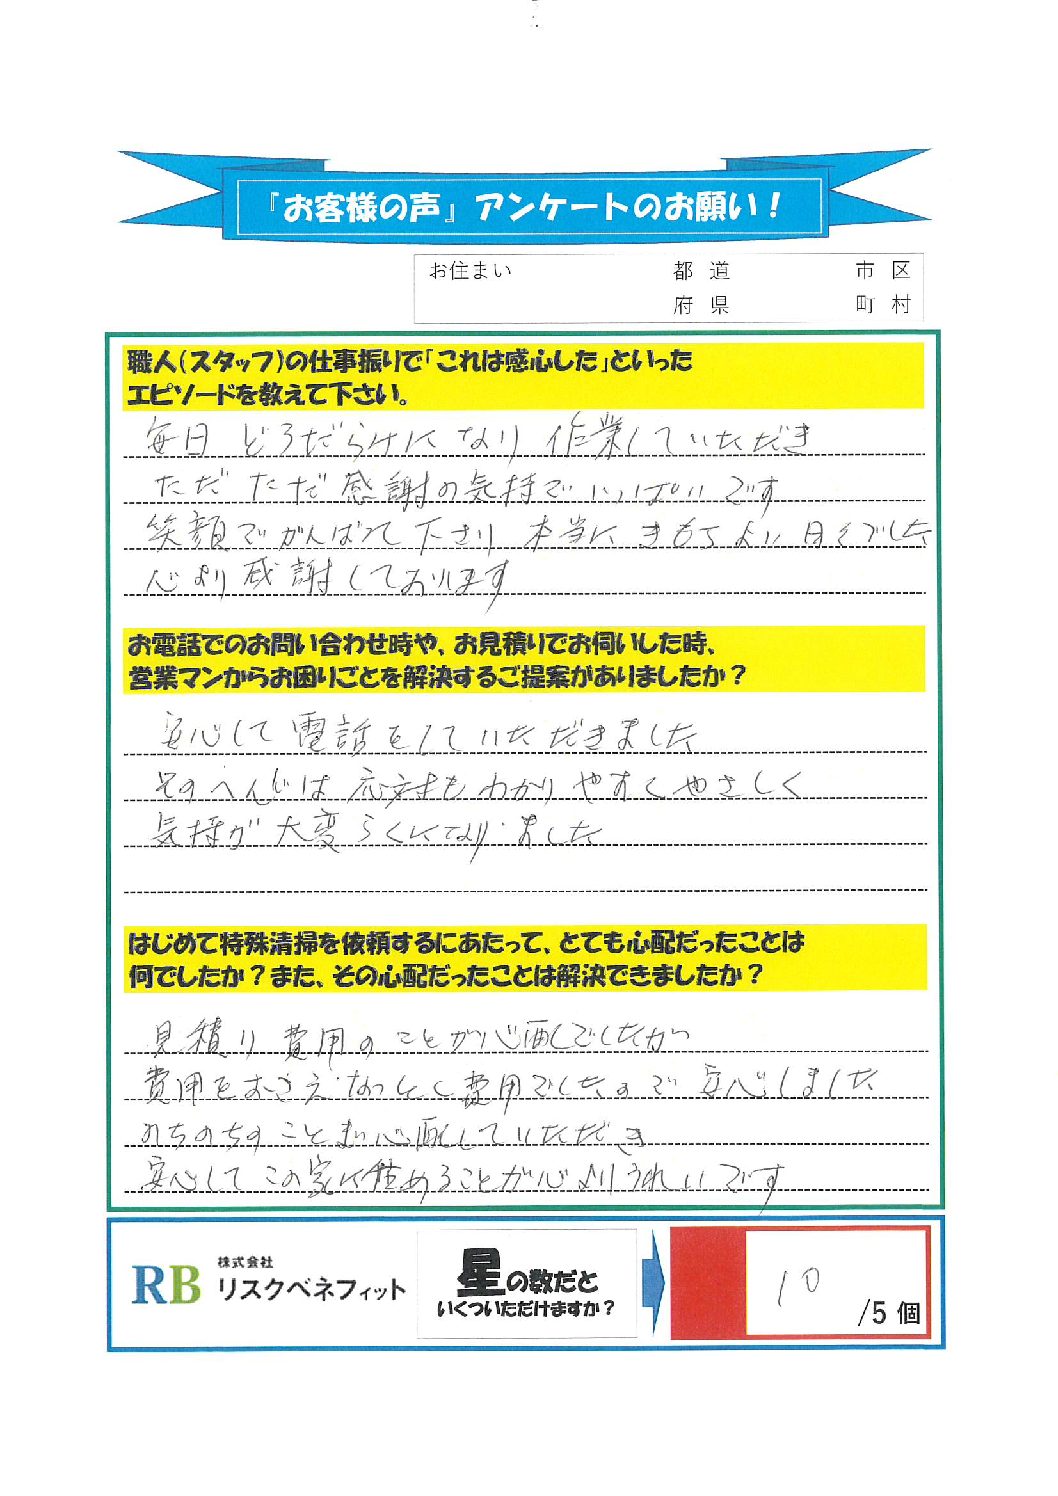 『お客様の声』アンケートのお願い！
お住まい 都 道 市 区
府 県 町 村
職人(スタッフ)の仕事振りで「これは感心した」といった
エピソードを教えて下さい。
毎日 どろだらけに なり 作業していただき
ただ ただ 感謝の気持でいっぱいです
笑顔でがんばって 下さり 本当に きもちよい 日々でした
心より 感謝しております
お電話でのお問い合わせ時や、お見積りでお伺いした時、
営業マンからお困りごとを解決するご提案がありましたか？
安心して 電話をしていただきました
そのへんじは 応対も わかりやすく やさしく
気持が 大変 らくになりました
はじめて特殊清掃を依頼するにあたって、とても心配だったことは
何でしたか？また、その心配だったことは解決できましたか？
見積り 費用のことが心配でしたが
費用をおさえ なっとく費用でしたので 安心しました
のちのちのことまで心配していただき
安心して この家に住めることが心よりうれしいです
RB 株式会社
リスクベネフィット
星の数だと
いくついただけますか？
10
/5 個